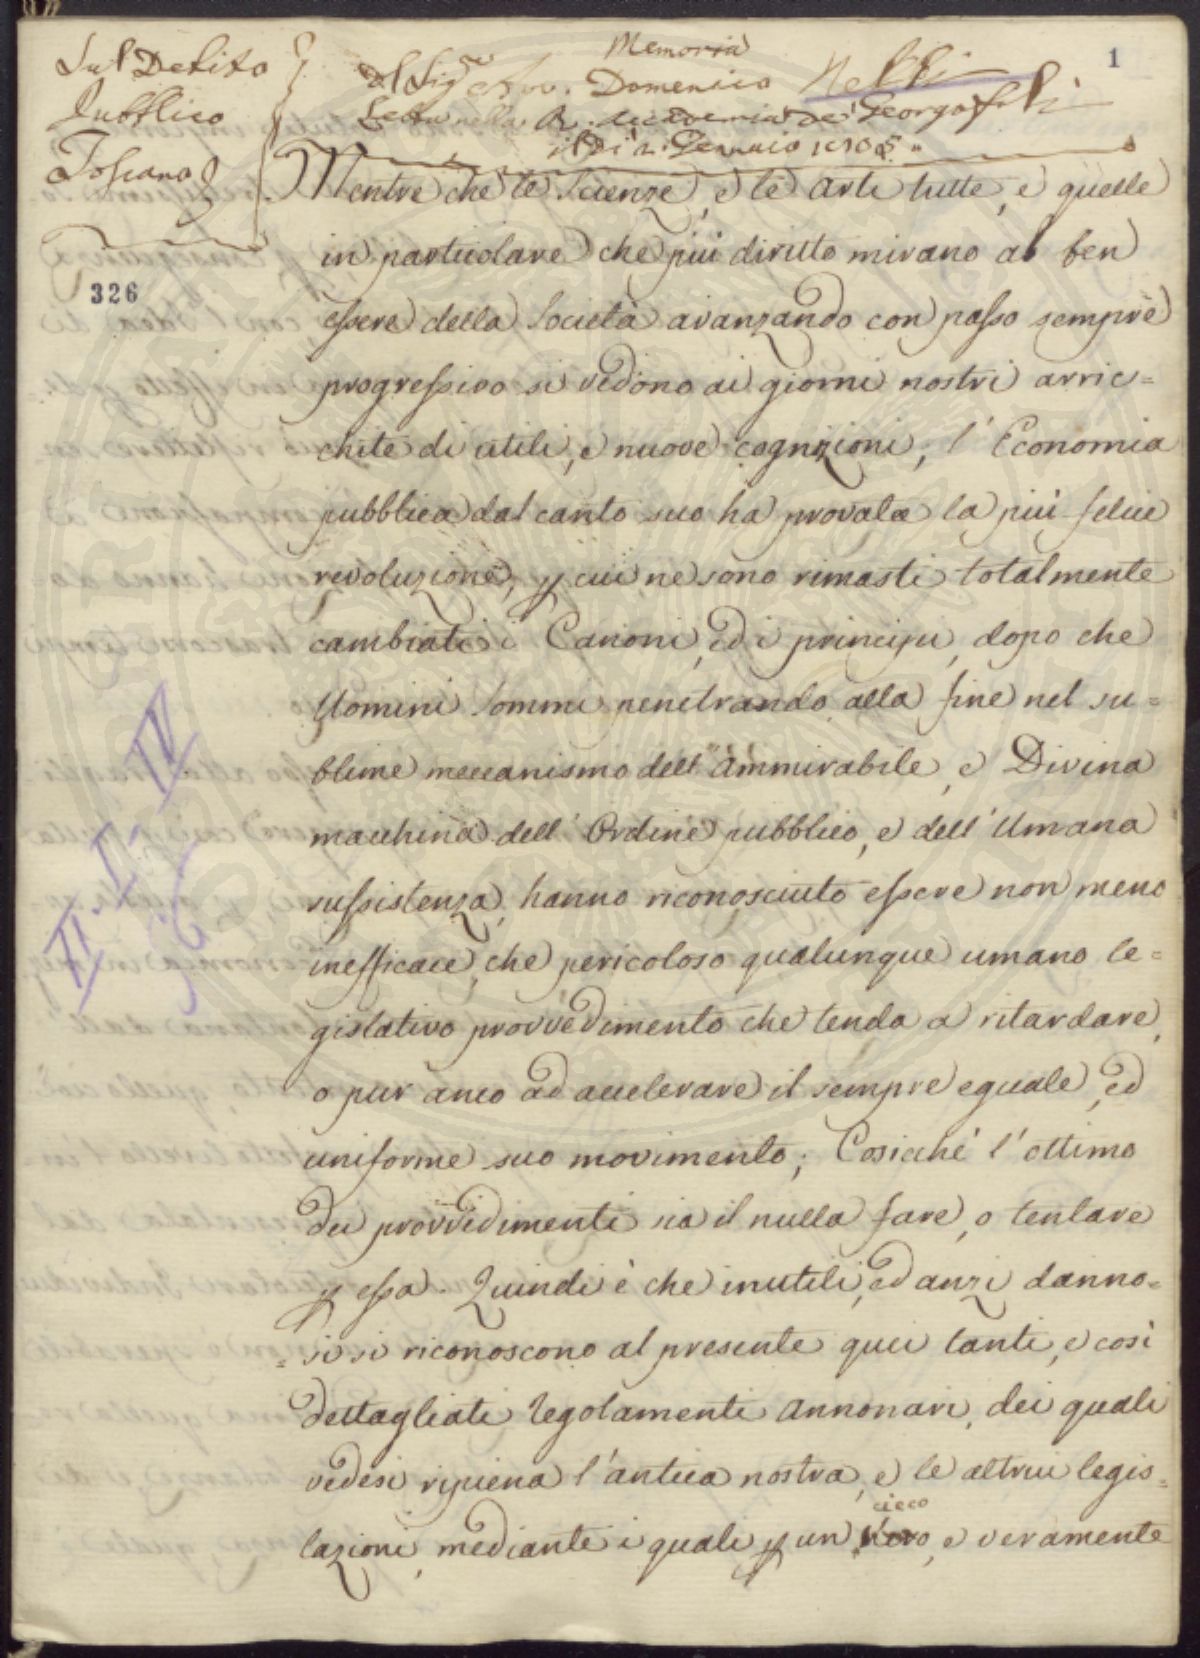 1
Sul Debito
Pubblico
Toscano
Memoria
del Sig.re Avv. Domenico Nelli
Letta nella R. Accademia de' Georgofili
il dì 2. Gennaio 1805.
326
Mentre che le Scienze, e le Arti tutte, e quelle
in particolare che più diritto mirano al ben
essere della Società avanzando con passo sempre
progressivo si vedono ai giorni nostri arric=
chite di utili, e nuove cognizioni, l'Economia
pubblica dal canto suo ha provata la più felice
revoluzione, p cui ne sono rimasti totalmente
cambiati i Canoni, ed i principii, dopo che
Uomini sommi penetrando alla fine nel su=
blime meccanismo dell'ammirabile, e Divina
macchina dell'Ordine pubblico, e dell'Umana
sussistenza, hanno riconosciuto essere non meno
inefficace, che pericoloso qualunque umano le=
gislativo provvedimento che tenda a ritardare,
o pur anco ad accelerare il sempre eguale, ed
uniforme suo movimento; Cosicchè l'ottimo
dei provvedimenti sia il nulla fare, o tentare
p essa. Quindi è che inutili, ed anzi danno=
=si si riconoscono al presente quei tanti, e così
dettagliati regolamenti Annonari, dei quali
vedesi ripiena l'antica nostra, e le altrui legis=
lazioni, mediante i quali p un cieco, e veramente
II. I. IV